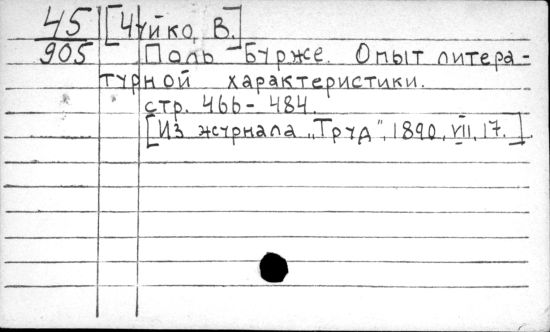 45
905
[Чуйко, В.]
Поль Бурже. Опыт литера-
турной характеристики.
стр. 466-484.
[Из журнала „Труд", 1890, VII, 17.]